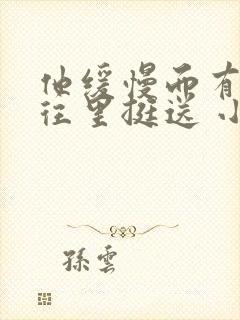 他缓慢而有
往里挺送 小
孫雲